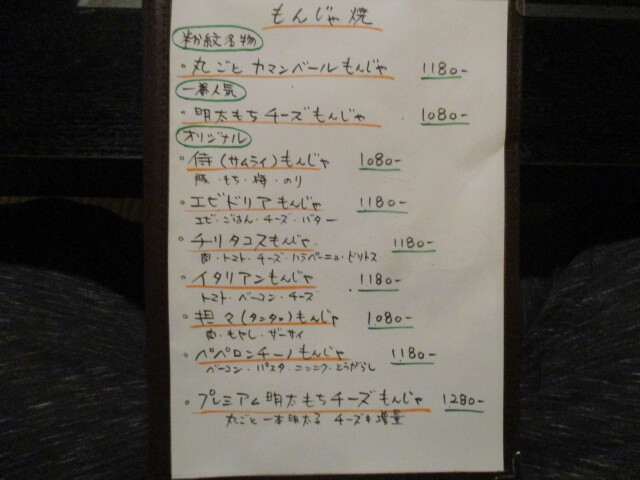 もんじゃ焼
粉紋名物
・丸ごと カマンベールもんじゃ 1180-
一番人気
・明太もちチーズもんじゃ 1080-
オリジナル
・侍(サムライ)もんじゃ 1080-
豚・もち・梅・のり
・エビドリアもんじゃ 1180-
エビ・ごはん・チーズ・バター
・チリタコスもんじゃ 1180-
肉・トマト・チーズ・ハラペーニョ・ドリトス
・イタリアンもんじゃ 1180-
トマト・ベーコン・チーズ
・担々(タンタン)もんじゃ 1080-
肉・もやし・ザーサイ
・ペペロンチーノもんじゃ 1180-
ベーコン・パスタ・ニンニク・とうがらし
・プレミアム明太もちチーズもんじゃ 1280-
丸ごと一本明太子 チーズ増量